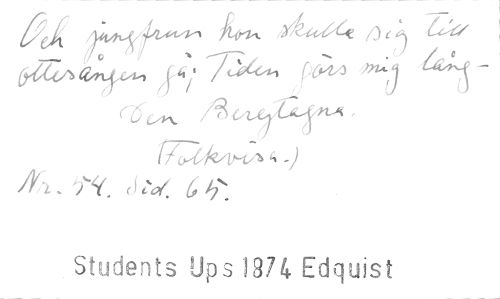 Och jungfrun hon skulle sig till
ottesången gå; Tiden görs mig lång-
Den Bergtagna.
(Folkvisa.)
Nr. 54. Sid. 65.
Students Ups 1874 Edquist